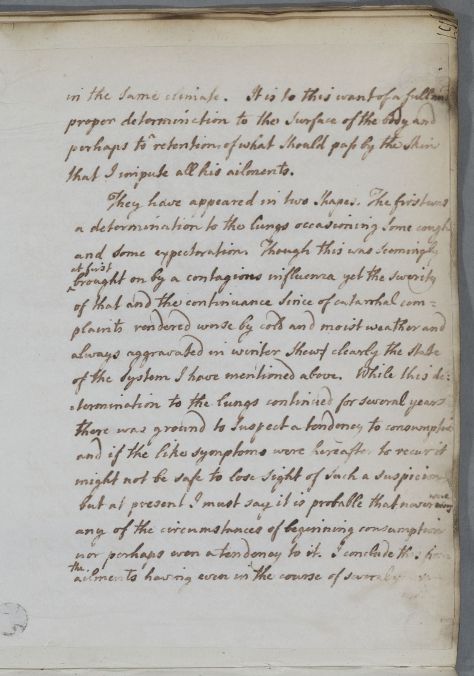 151
in the same climate. It is to this want of a full and
proper determination to the surface of the body and
perhaps to retention of what should pass by the Skin
that I impute all his ailments.
They have appeared in two shapes. The first was
a determination to the lungs occasioning some cough
and some expectoration. Though this was seemingly
at first
brought on by a contagious influenza yet the severity
of that and the continuance since of catarrhal com=
plaints rendered worse by cold and moist weather and
always aggravated in winter shews clearly the state
of the System I have mentioned above. While this de=
=termination to the lungs continued for several years
there was ground to suspect a tendency to consumption
and if the like symptoms were hereafter to recur it
might not be safe to lose sight of such a suspicion
but at present I must say it is probable that never were
any of the circumstances of beginning consumption
nor perhaps even a tendency to it. I conclude this from
the
ailments having even in the course of several